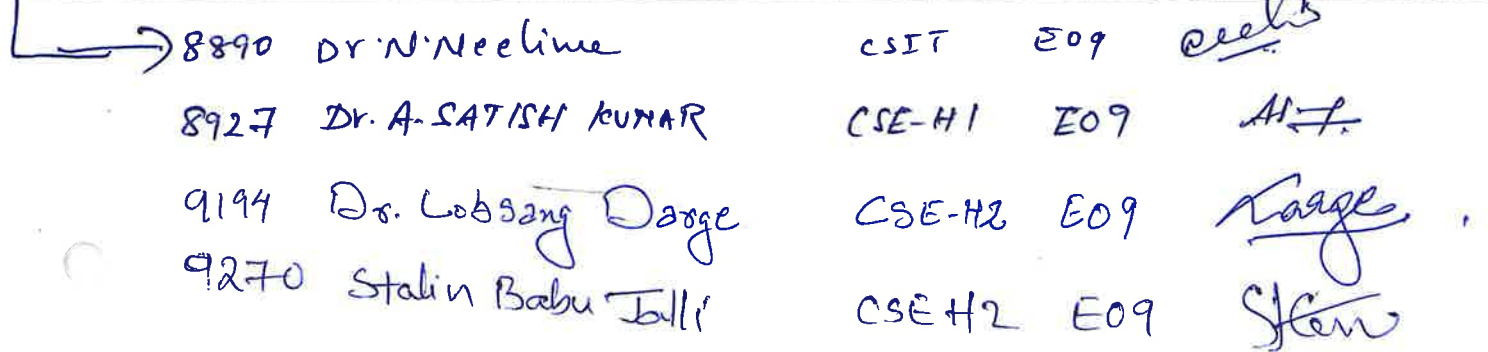 8890 Dr. N. Neelima CSIT E09
8927 Dr. A. SATISH KUMAR CSE-H1 E09
9194 Dr. Lobsang Darge CSE-H2 E09
9270 Stalin Babu Jalli CSE H2 E09